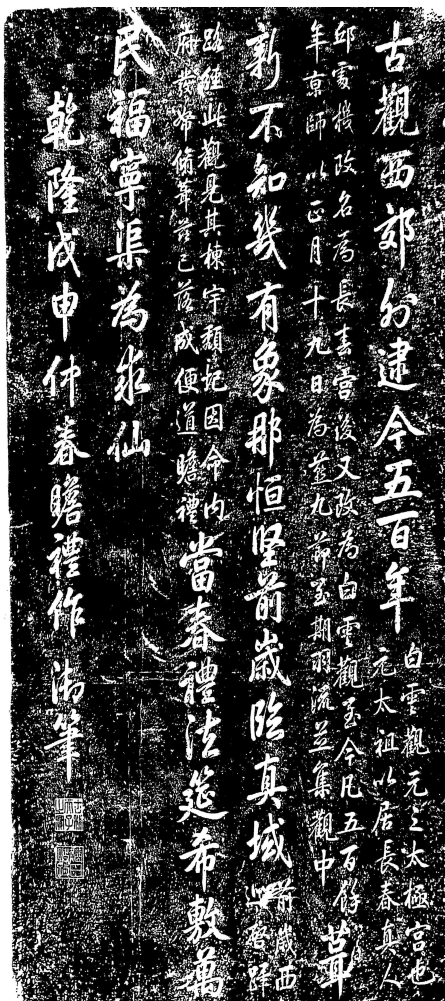 古觀西郊外逮今五百年
白雲觀元之太極宮也
元太祖以居長春真人
邱處機改名為長春宮後又改為白雲觀至今凡五百餘
年京師以正月十九日為燕九節至期羽流並集觀中
葺
新不知幾有象那恒堅前歲臨真域
前歲西
巡啓蹕
路經此觀見其棟宇頹圮因命內
府發帑脩葺茲已落成便道瞻禮
當春禮法筵希敷萬
民福寧渠為求仙
乾隆戊申仲春瞻禮作御筆